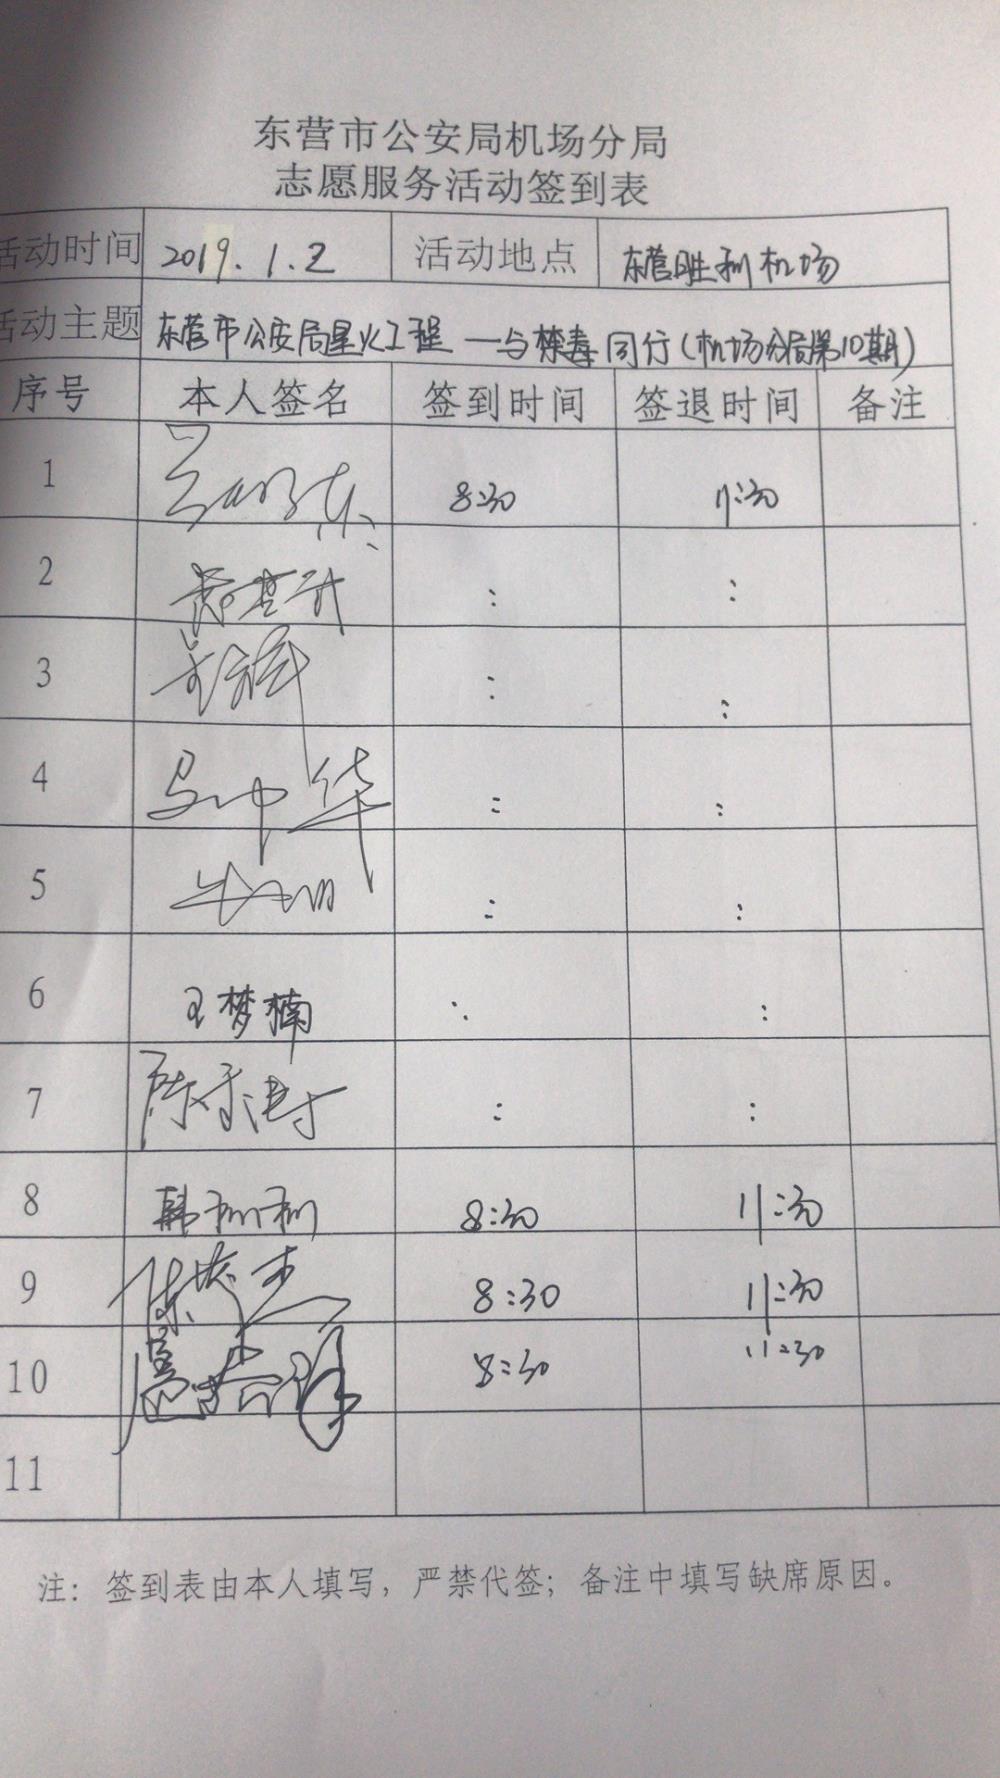 东营市公安局机场分局
志愿服务活动签到表
活动时间 2019.1.2 活动地点 东营胜利机场
活动主题 东营市公安局星火工程 —与禁毒同行(机场分局第10期)
序号 本人签名 签到时间 签退时间 备注
1 8:30 11:30
2 : :
3 : :
4 马中华 : :
5 : :
6 王梦楠 : :
7 : :
8 韩利利 8:30 11:30
9 8:30 11:30
10 8:30 11:30
11
注：签到表由本人填写，严禁代签；备注中填写缺席原因。